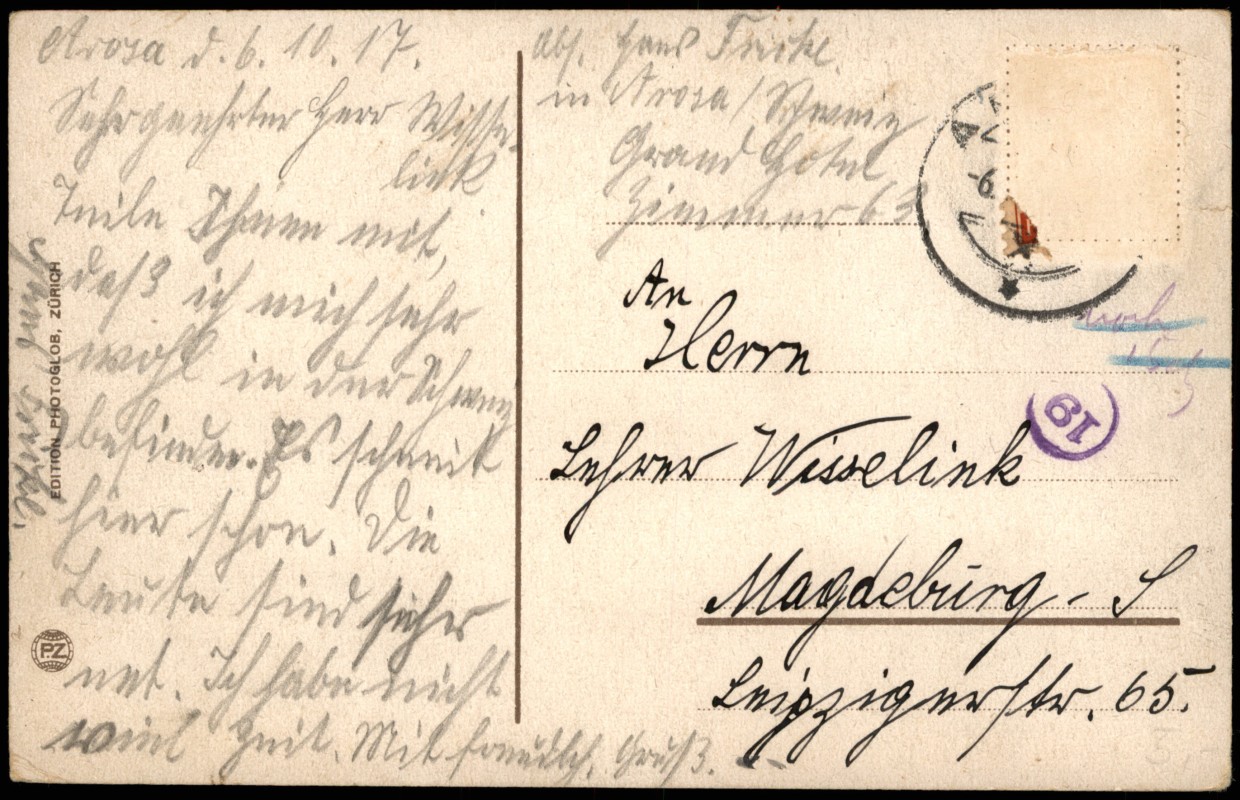 Arosa d. 6. 10. 17.
Sehrgeehrter Herr Wisse-
link
Teile Ihnen mit,
daß ich mich sehr
wohl in der Schweiz
befinde. Es schneit
hier schon. Die
Leute sind sehr
net. Ich habe nicht
viel Zeit. Mit freundlch. Gruß.
Hans
Abs. Hans
in Arosa / Schweiz
Grand Hotel
Zimmer 63
An
Herrn
Lehrer Wisselink
Magdeburg - S
Leipzigerstr. 65.
EDITION PHOTOGLOB, ZÜRICH
PZ
-6.
19